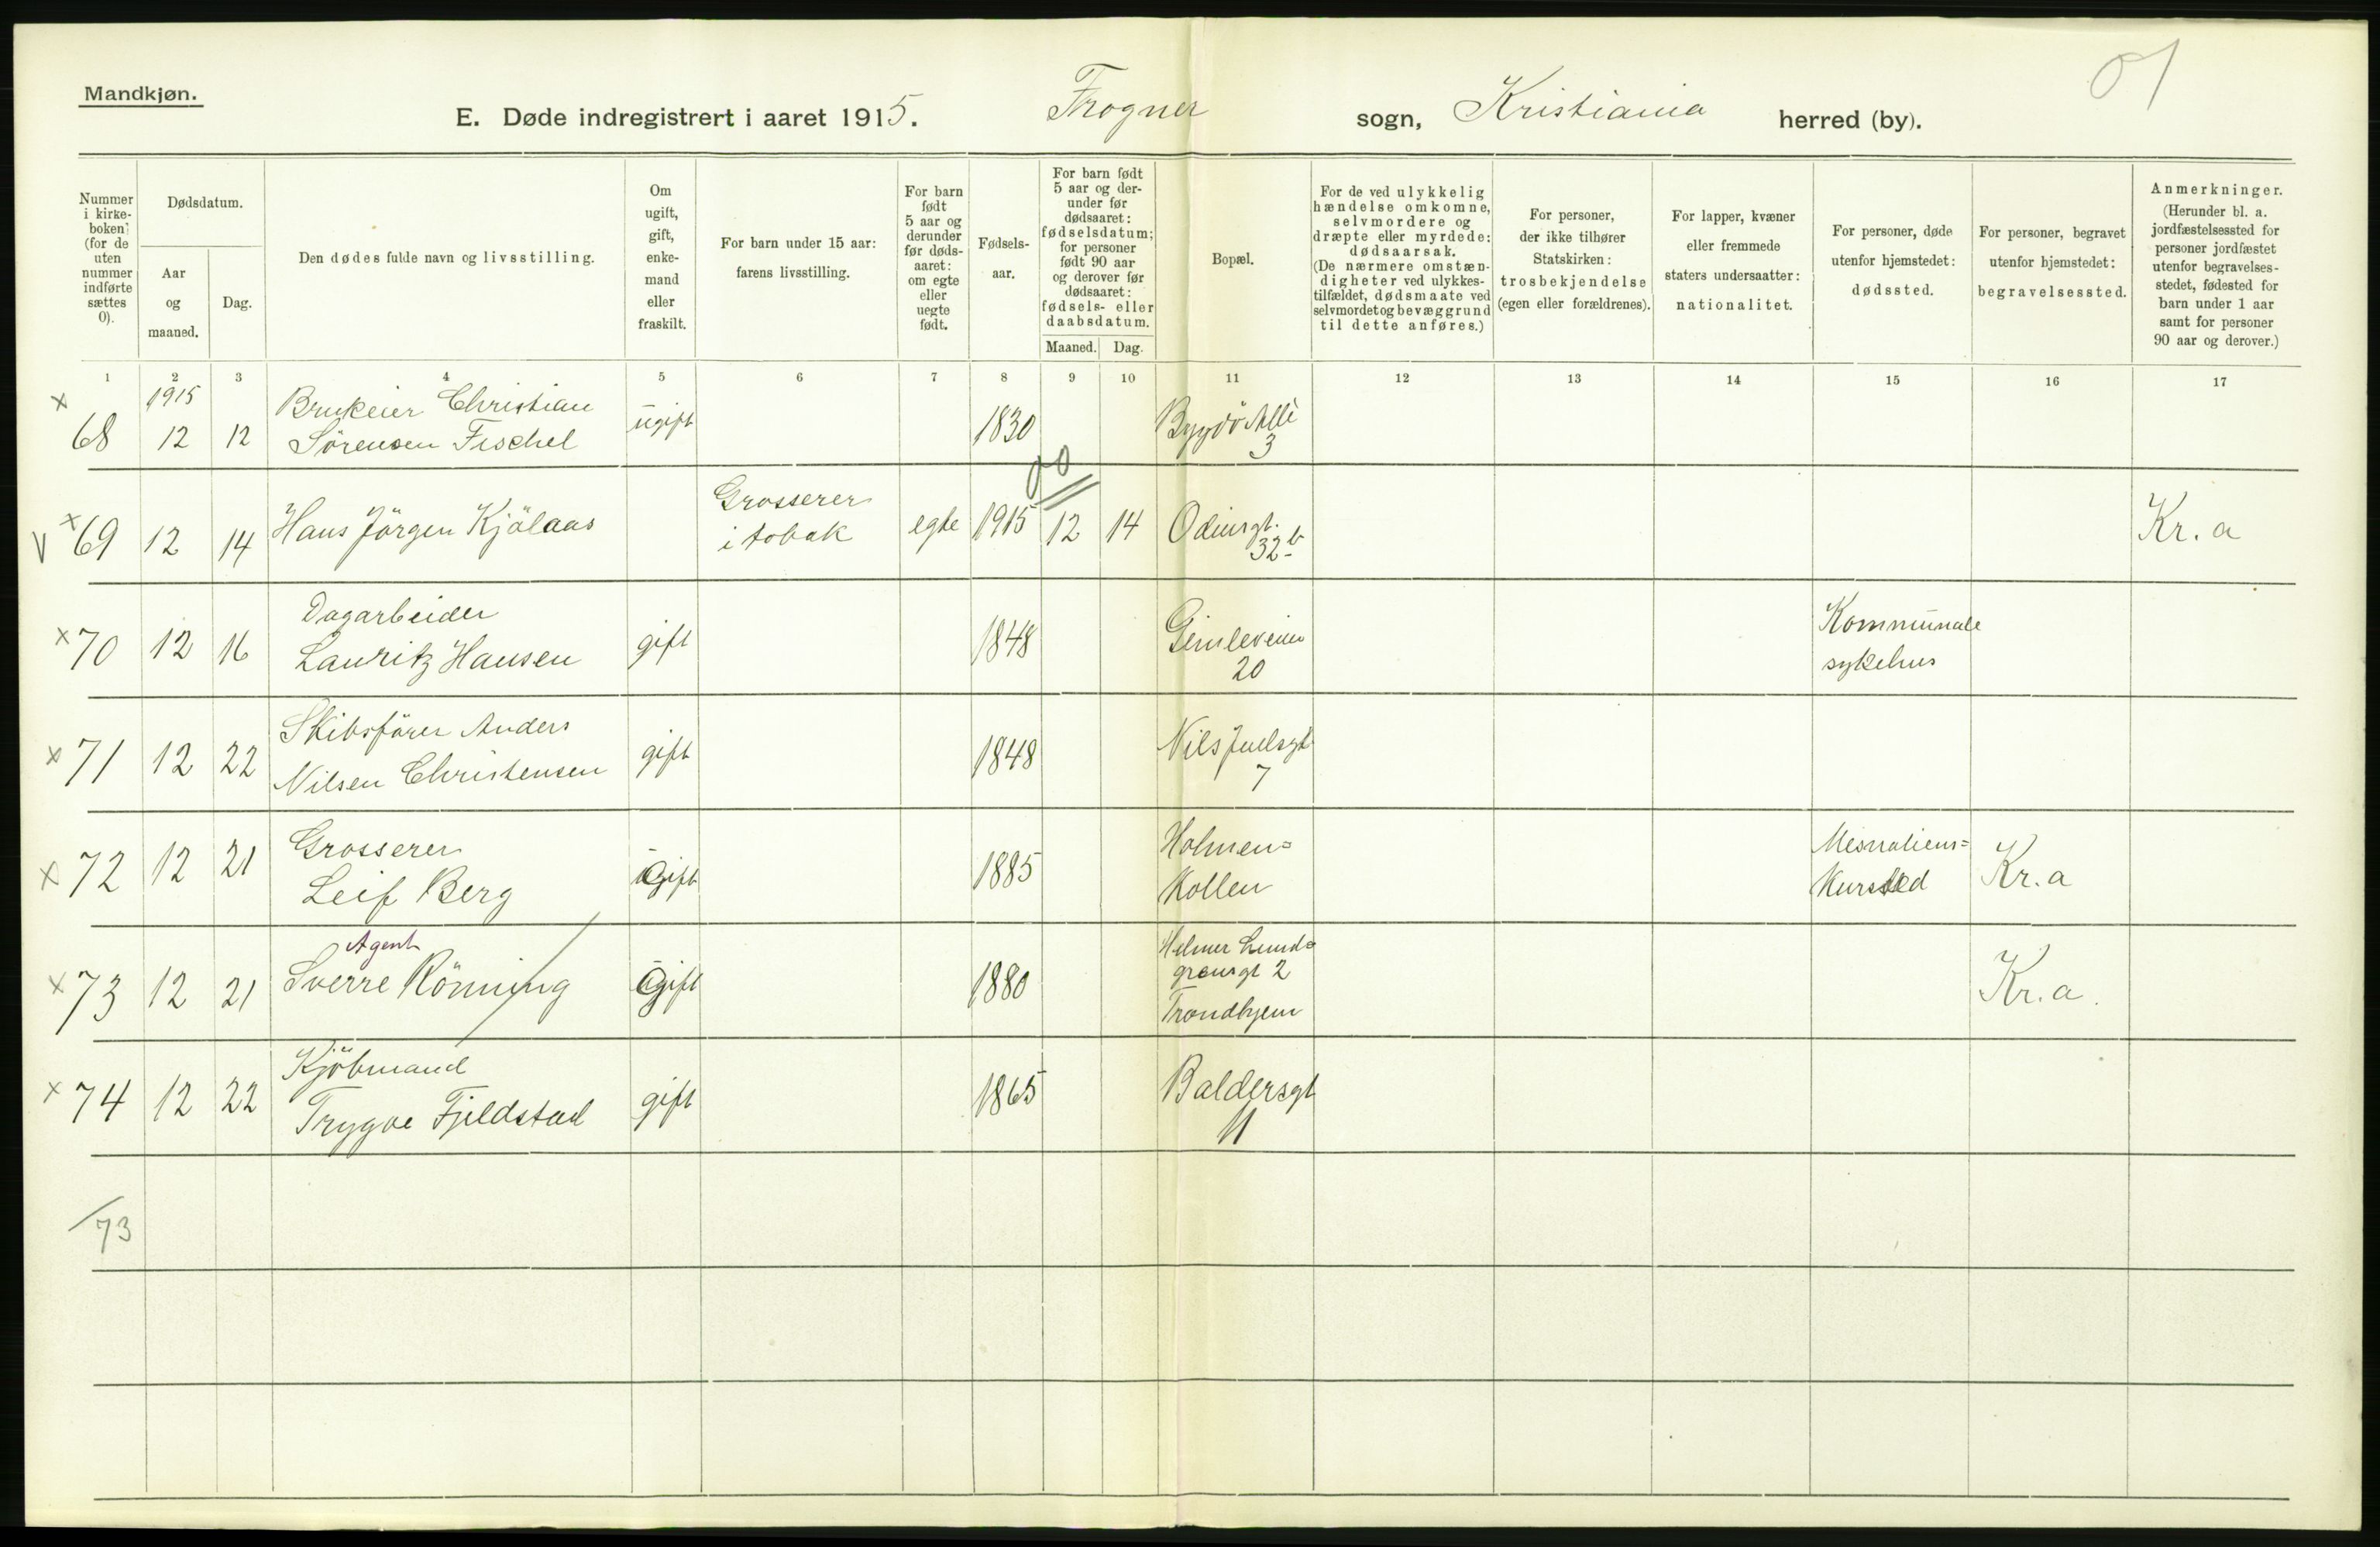 Mandkjøn.
01
E. Døde indregistrert i aaret 1915. Frogner sogn, Kristiania herred (by).
Nummer i kirke-boken (for de uten nummer indførte sættes 0).
Dødsdatum.
Aar og maaned.
Dag.
Den dødes fulde navn og livsstilling.
Om ugift, gift, enke-mand eller fraskilt.
For barn under 15 aar: farens livsstilling.
For barn født 5 aar og derunder før døds-aaret: om egte eller uegte født.
Fødsels-aar.
For barn født 5 aar og der-under før dødsaaret: fødselsdatum; for personer født 90 aar og derover før dødsaaret: fødsels- eller daabsdatum.
Maaned. Dag.
Bopæl.
For de ved ulykkelig hændelse omkomne, selvmordere og dræpte eller myrdede: dødsaarsak. (De nærmere omstæn-digheter ved ulykkes-tilfældet, dødsmaate ved selvmordet og bevæggrund til dette anføres.)
For personer, der ikke tilhører Statskirken: trosbekjendelse (egen eller forældrenes).
For lapper, kvæner eller fremmede staters undersaatter: nationalitet.
For personer, døde utenfor hjemstedet: dødssted.
For personer, begravet utenfor hjemstedet: begravelsessted.
Anmerkninger. (Herunder bl. a. jordfæstelsessted for personer jordfæstet utenfor begravelses-stedet, fødested for barn under 1 aar samt for personer 90 aar og derover.)
1 2 3 4 5 6 7 8 9 10 11 12 13 14 15 16 17
x 68 1915 12 12 Brukeier Christian Sörensen Fischel ugift 1830 Bygdö Allé 3
00
V x 69 12 14 Hans Jörgen Kjölaas Grosserer i tobak egte 1915 12 14 Odinsgt. 32 b Kr. a
x 70 12 16 Dagarbeider Lauritz Hansen gift 1848 Gimleveien 20 Kommunale sykehus
x 71 12 22 Skibsförer Anders Nilsen Christensen gift 1848 Nils Juelsgt 7
x 72 12 21 Grosserer Leif Berg ugift 1885 Holmen= Kollen Mesnaliens= Kursted Kr. a
x 73 12 21 Agent Sverre Rönning Gift 1880 Helmer Lund= grensgt 2 Trondhjem Kr. a.
x 74 12 22 Kjöbmand Trygve Fjeldstad gift 1865 Baldersgt 11
/73